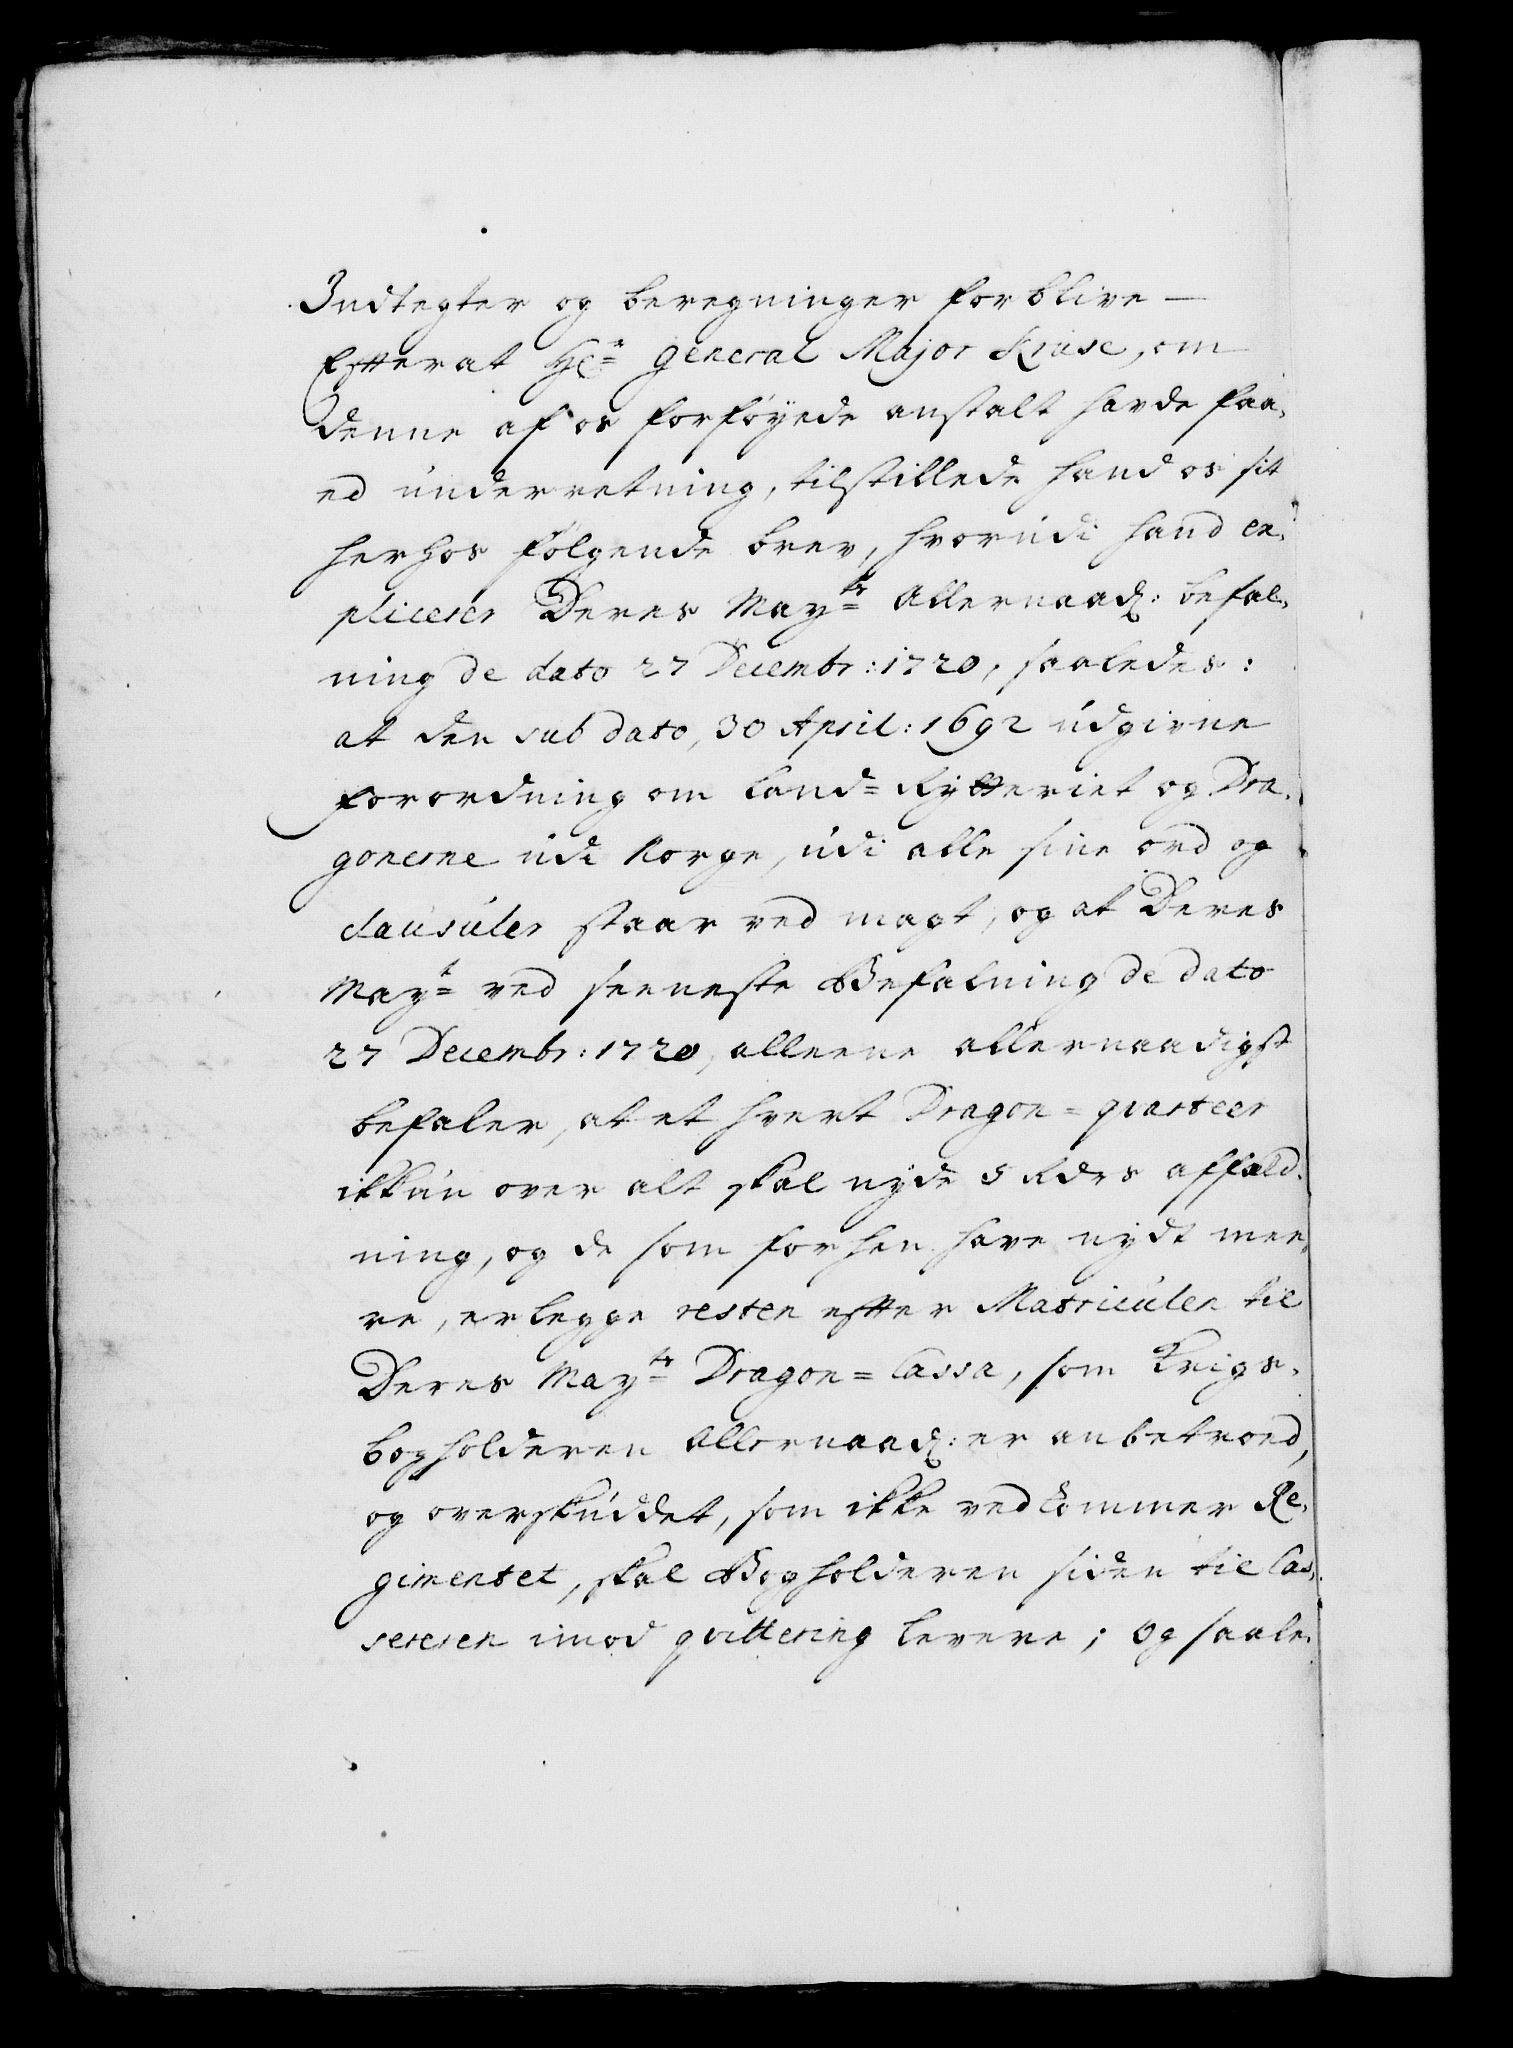 Indtegter og beregninger forblive —
Efter at Hr: General Major Kruse, om
denne af os forføyede anstalt havde faa,
ed underretning, tilstillede hand os sit
herhos følgende brev, hvorudi hand ex,
pliceres Deres Mayts Allernaad: befal,
ning de dato 27 Decembr: 1720, saaledes:
at den sub dato, 30 April: 1692 udgivne
forordning om Land= Rytteriet og Dra,
gonerne udi Norge, udi alle sine ord og
Clausuler staar ved magt, og at Deres
Mayt ved seeneste Befalning de dato
27 Decembr: 1720, alleene allernaadigst
befaler, at et hvert Dragon= qvarteer
ikkun over alt skal nyde 5 Rdrs affæld,
ning, og de som forhen have nydt mee,
re, erlegge resten efter Matriculen til
Deres Mayts Dragon= Cassa, som Krigs,
bogholderen Allernaad: er anbetroed,
og overskuddet, som ikke vedkommer Re,
gimentet, skal Bogholderen siden til Cas,
sereren imod qvittering levere; og saale,